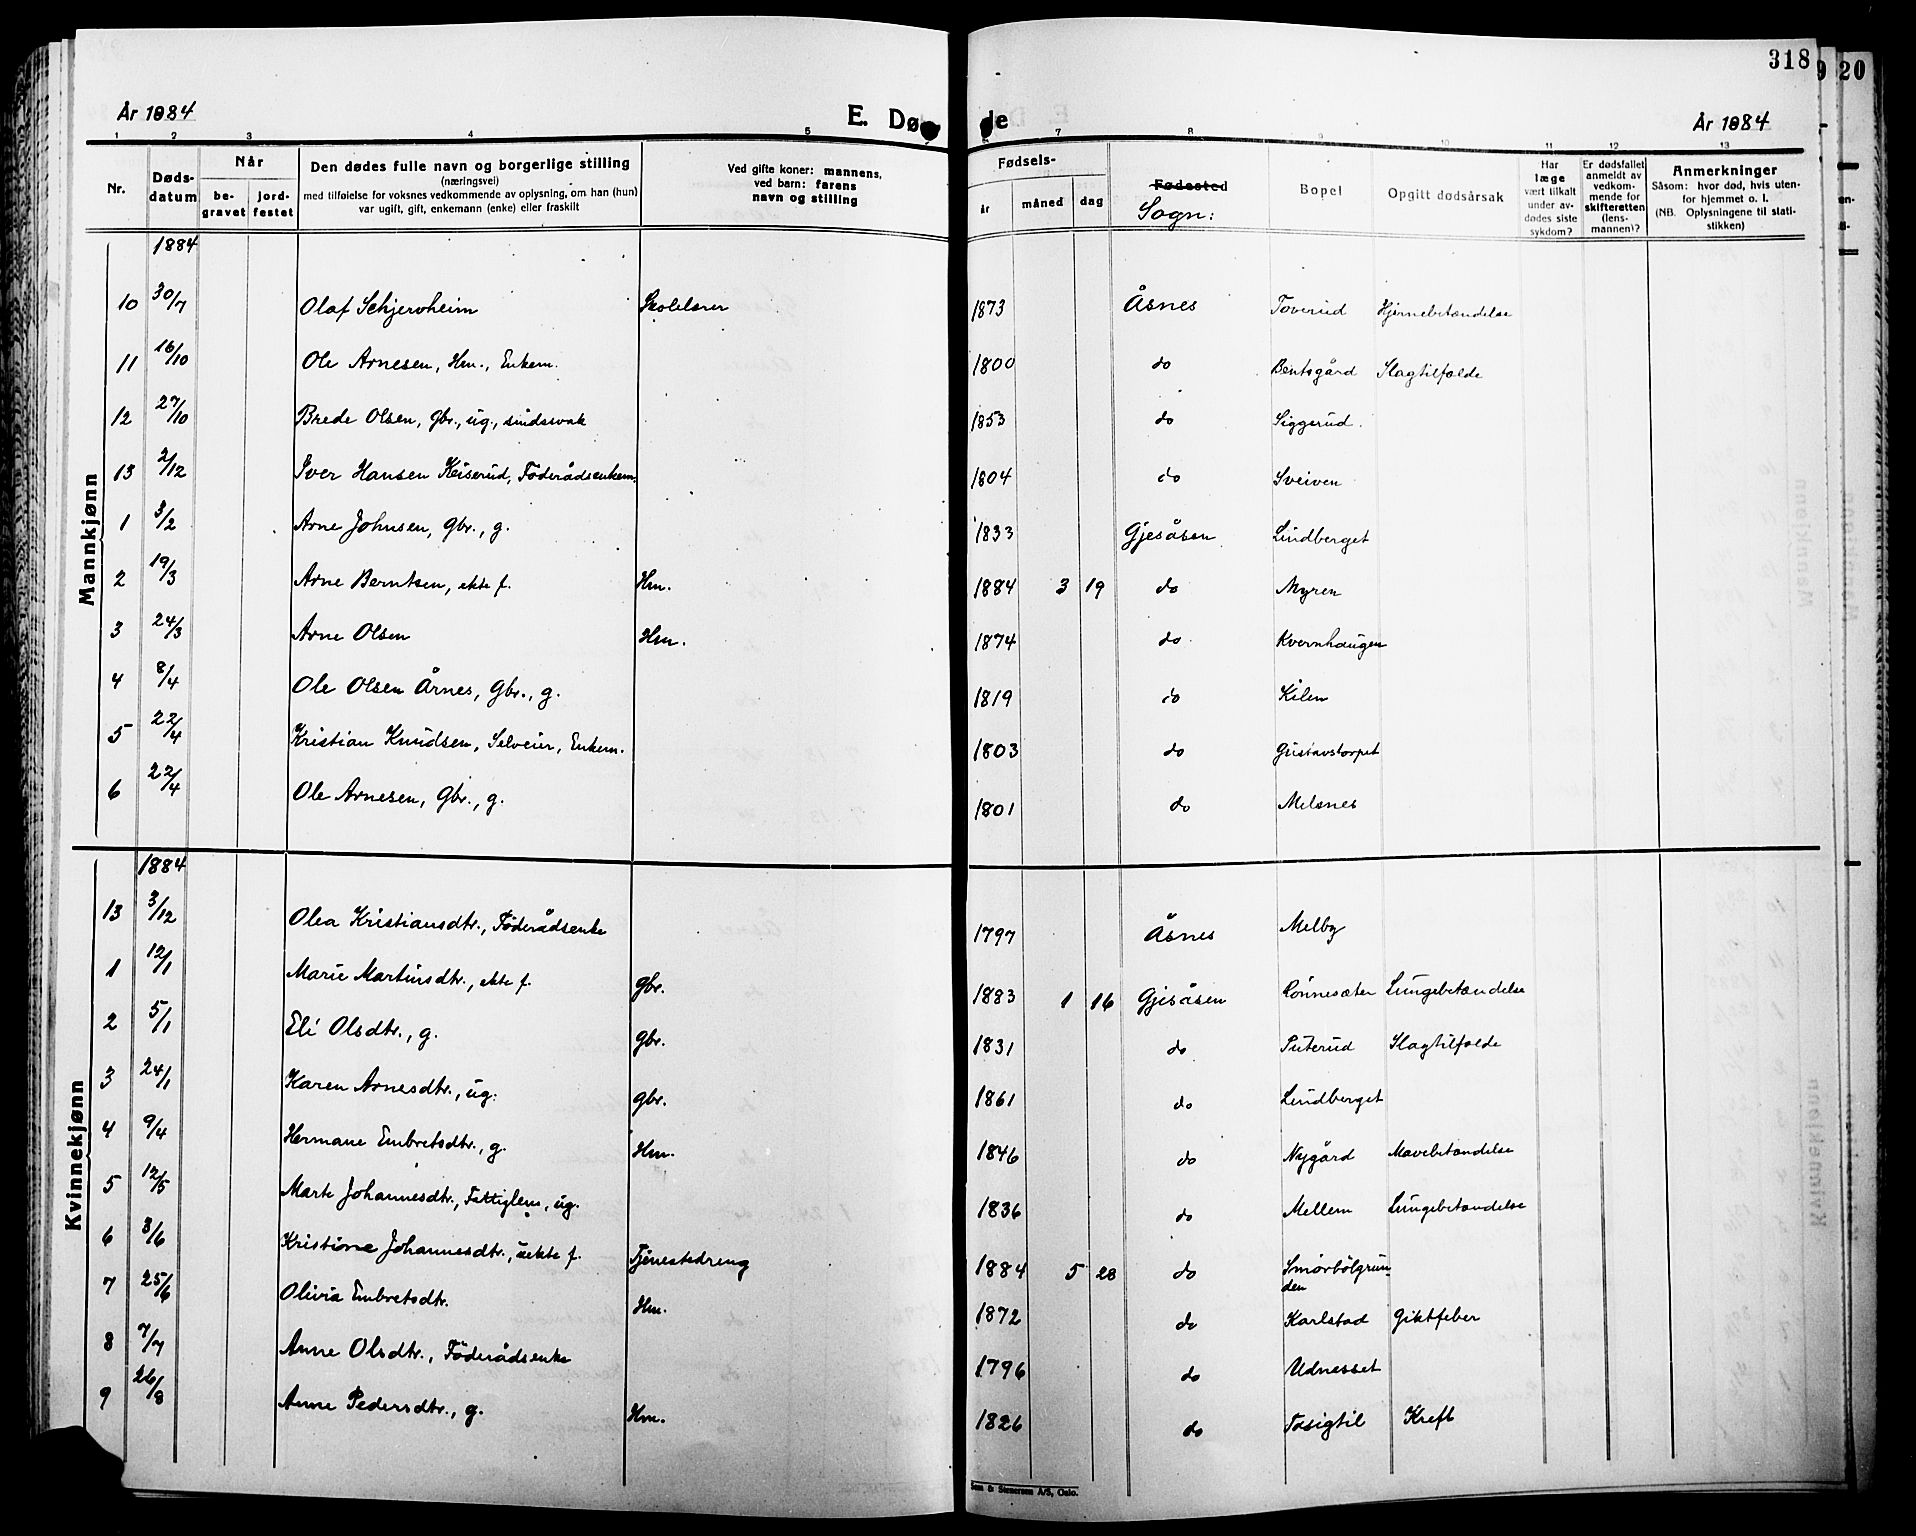 318
20
År 1884
E. Dø de
År 1884
1 2 3 4 5 7 8 9 10 11 12 13
Nr.
Døds-
datum
Når
be-
gravet
jord-
festet
Den dødes fulle navn og borgerlige stilling
(næringsvei)
med tilføielse for voksnes vedkommende av oplysning, om han (hun)
var ugift, gift, enkemann (enke) eller fraskilt
Ved gifte koner: mannens,
ved barn: farens
navn og stilling
Fødsels-
år måned dag
Fødested
Sogn:
Bopel
Opgitt dødsårsak
Har
læge
vært tilkalt
under av-
dødes siste
sykdom?
Er dødsfallet
anmeldt av
vedkom-
mende for
skifteretten
(lens-
mannen)?
Anmerkninger
Såsom: hvor død, hvis uten-
for hjemmet o. l.
(NB. Oplysningene til stati-
stikken)
Mannkjønn
1884
10 30/7 Olaf Schjervheim Skolelærer 1873 Åsnes Toverud Hjernebetændelse
11 16/10 Ole Arnesen, Hm., Enkem. 1800 do Bentsgård Slagtilfælde
12 27/10 Brede Olsen, Gbr., ug., sindssvak 1853 do Siggerud.
13 2/12 Iver Hansen Keiserud, Föderådsenkem. 1804 do Sveiven
1 3/2 Arne Johnsen, Gbr., g. 1833 Gjesåsen Lindberget
2 19/3 Arne Berntsen, ekte f. Hm. 1884 3 19 do Myren
3 24/3 Arne Olsen Hm. 1874 do Kvernhaugen
4 8/4 Ole Olsen Årnes, Gbr., g. 1819 do Kilen
5 22/4 Kristian Knudsen, Selveier, Enkem. 1803 do Gustavstorpet
6 22/4 Ole Arnesen, Gbr., g. 1801 do Melsnes
Kvinnekjønn
1884
13 3/12 Olea Kristiansdtr., Föderådsenke 1797 Åsnes Melby
1 12/1 Marie Martinsdtr., ekte f. gbr. 1883 1 16 Gjesåsen Rönnesæter Lungebetændelse
2 5/1 Eli Olsdtr., g. gbr. 1831 do Puterud Slagtilfælde
3 24/1 Karen Arnesdtr., ug. gbr. 1861 do Lindberget
4 9/4 Hermane Embretsdtr., g. Hm. 1846 do Nygård Mavebetændelse
5 12/5 Marte Johannesdtr., Fattiglem, ug. 1836 do Mellem Lungebetændelse
6 3/6 Kristine Johannesdtr., uekte f. Tjenestedreng 1884 5 28 do Smörbölgrun-
den
7 25/6 Olivia Embretsdtr. Hm. 1872 do Karlstad Giktfeber
8 7/7 Anne Olsdtr., Föderådsenke 1796 do Udnesset
9 26/8 Anne Pedersdtr., g. Hm. 1826 do Tasigtil Kreft
Sem & Stenersen A/S, Oslo.